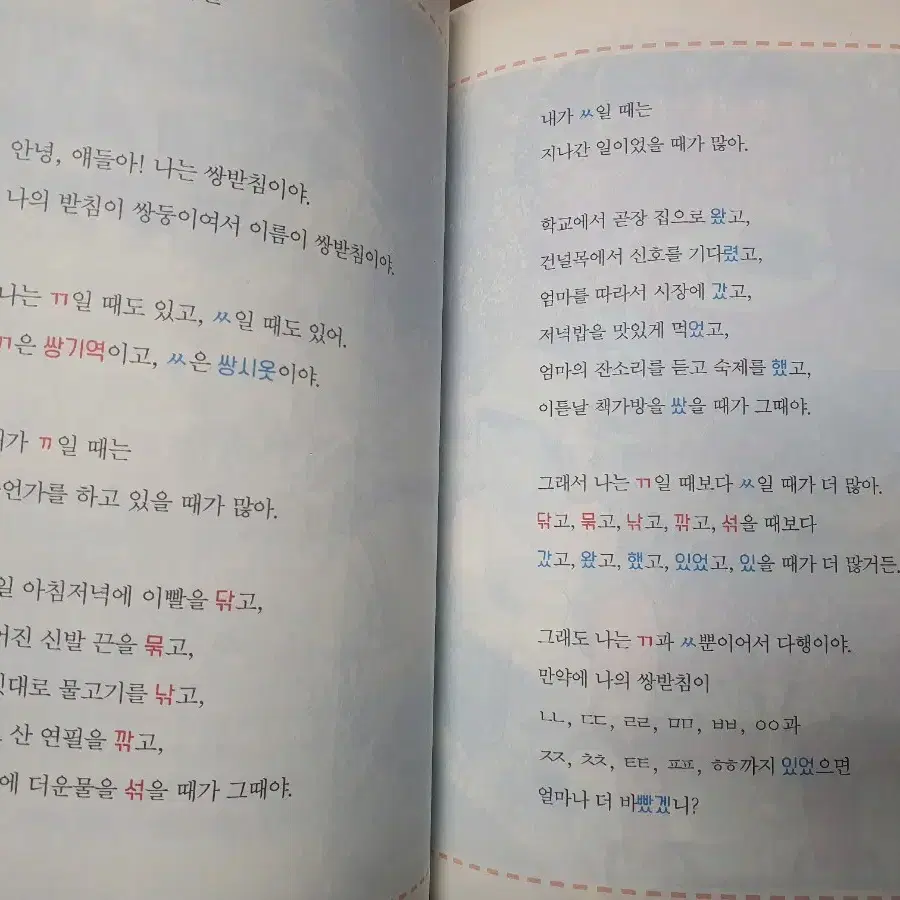 안녕, 얘들아! 나는 쌍받침이야.
나의 받침이 쌍둥이여서 이름이 쌍받침이야.
나는 ㄲ일 때도 있고, ㅆ일 때도 있어.
ㄲ은 쌍기역이고, ㅆ은 쌍시옷이야.
ㄲ일 때는
하고 있을 때가 많아.
아침저녁에 이빨을 닦고,
신발 끈을 묶고,
물고기를 낚고,
산 연필을 깎고,
더운물을 섞을 때가 그때야.
내가 ㅆ일 때는
지나간 일이었을 때가 많아.
학교에서 곧장 집으로 왔고,
건널목에서 신호를 기다렸고,
엄마를 따라서 시장에 갔고,
저녁밥을 맛있게 먹었고,
엄마의 잔소리를 듣고 숙제를 했고,
이튿날 책가방을 쌌을 때가 그때야.
그래서 나는 ㄲ일 때보다 ㅆ일 때가 더 많아.
닦고, 묶고, 낚고, 깎고, 섞을 때보다
갔고, 왔고, 했고, 있었고, 있을 때가 더 많거든.
그래도 나는 ㄲ과 ㅆ뿐이어서 다행이야.
만약에 나의 쌍받침이
ㄴㄴ, ㄸ, ㄹㄹ, ㅁㅁ, ㅃ, ㅇㅇ과
ㅉ, ㅊㅊ, ㅌㅌ, ㅍㅍ, ㅎㅎ까지 있었으면
얼마나 더 바빴겠니?